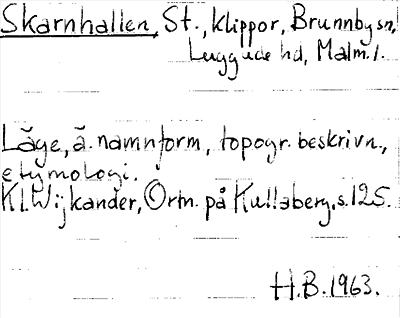 Skarnhallen, St., klippor, Brunnby sn,
Luggude hd, Malm.l.
Läge, ä. namnform, topogr. beskrivn.,
etymologi.
Kl. Wijkander, Ortn. på Kullaberg, s. 125.
H.B. 1963.